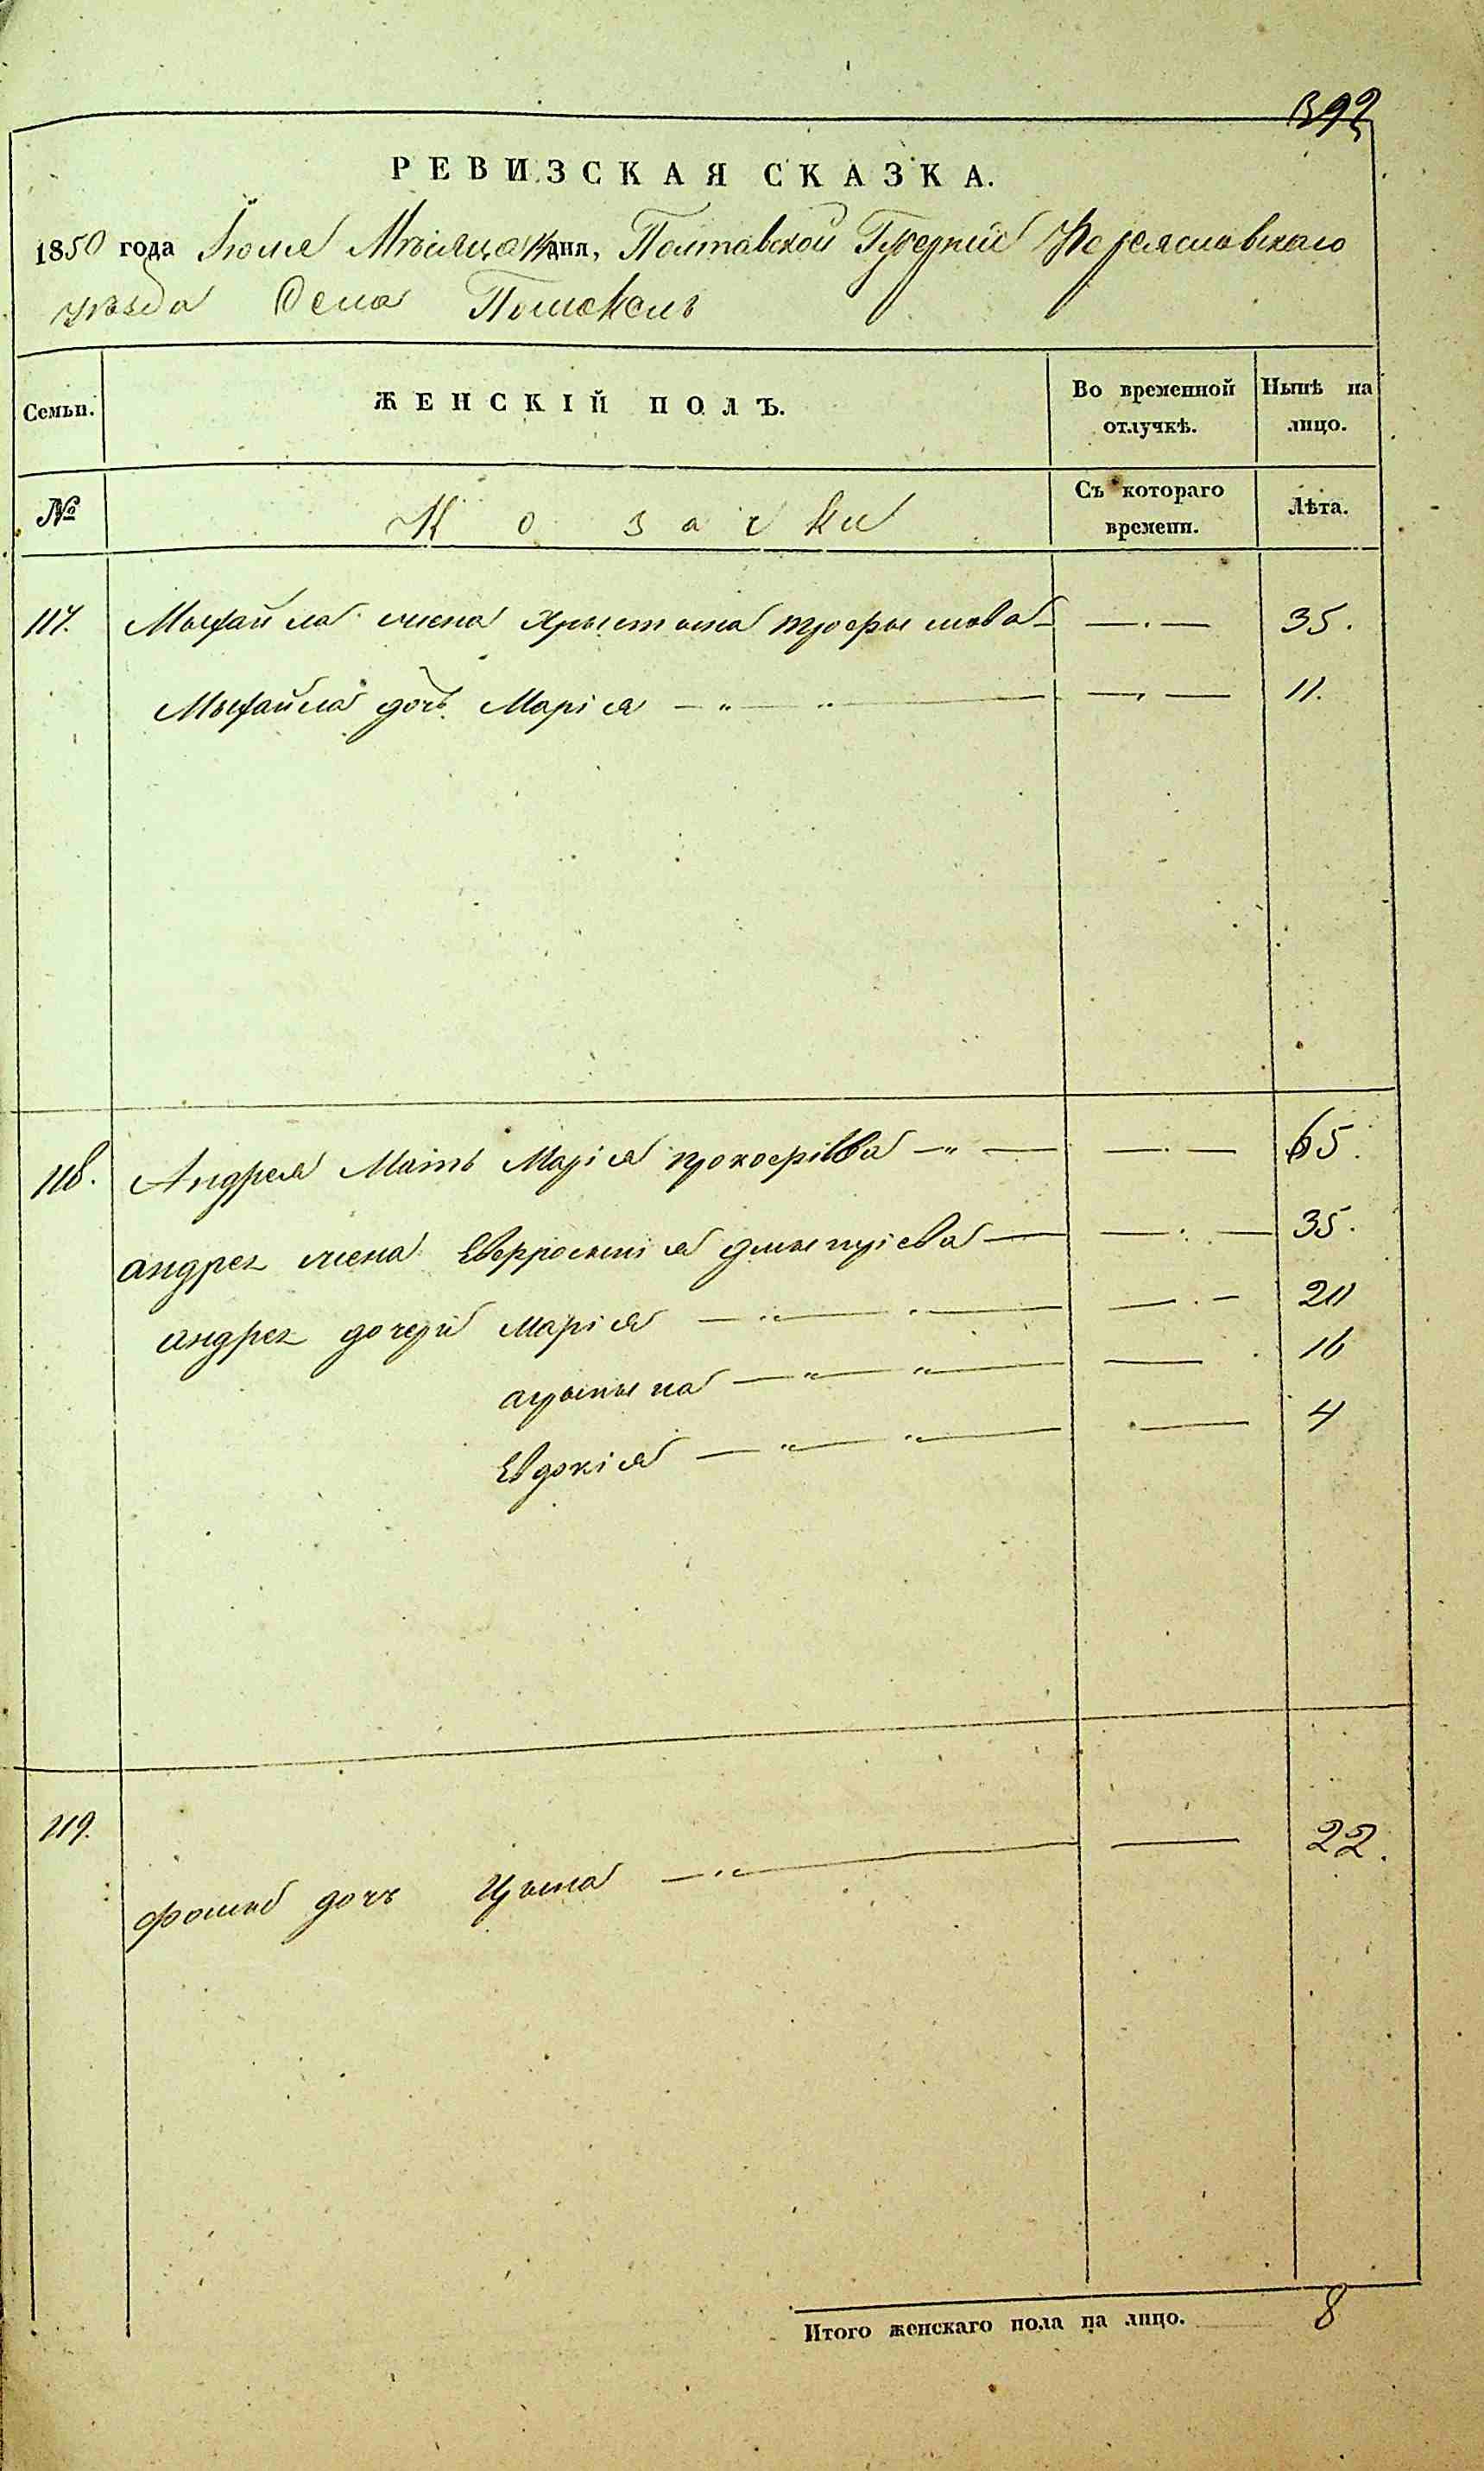 392
РЕВИЗСКАЯ СКАЗКА.
1850 года Іюля Мѣсяца дня, Полтавской Губерніи Переяславского
уѣзда Села
Семьи. ЖЕНСКІЙ ПОЛЪ. Во временной отлучкѣ. Нынѣ на лицо.
№ Козачки Съ котораго времени. Лѣта.
117. Мыхайла жена Хрыстына трофымова 35.
Мыхайла дочь Марія 11.
118. Андрея Мать Марія прокофіева 65.
андрея жена Евфросинія дмытріева 35.
андрея дочери Марія 20
агрыпына 16
Евдокія 4
119. фомы дочь Ирына 22.
Итого женскаго пола на лицо. 8